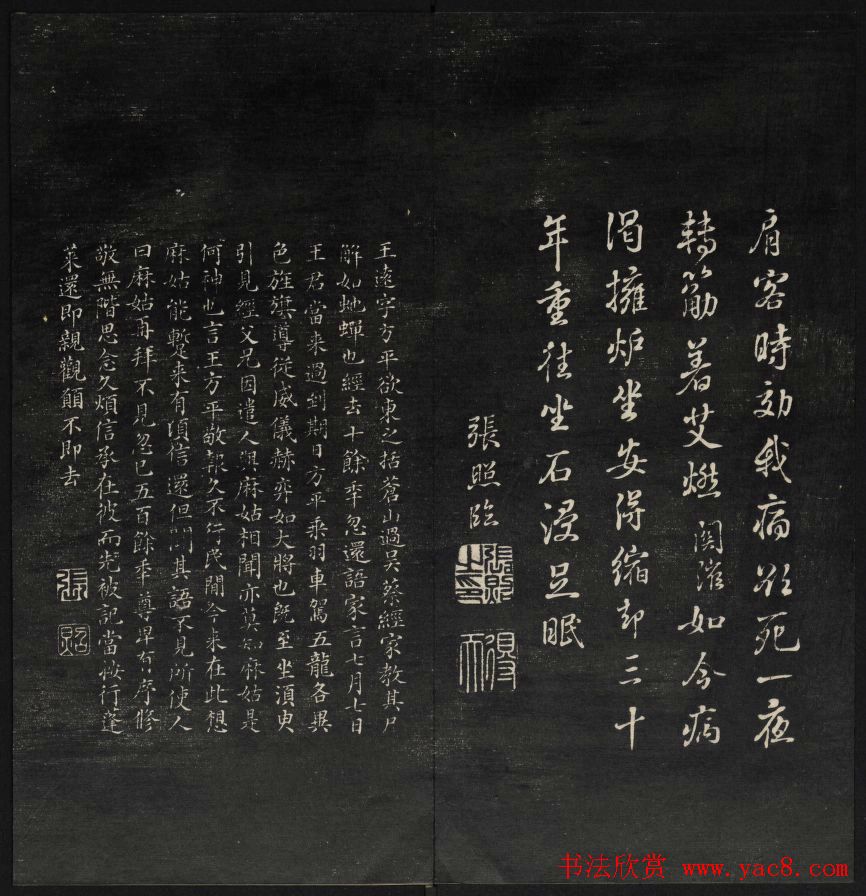 肩客時効我病欲死一夜
轉筋着艾燃如今病
渴擁炉坐安得縮却三十
年重往坐石浸足眠
張照臨
張照之印
得天
王遠字方平欲東之括蒼山過吴蔡經家教其尸
解如虵蟬也經去十餘秊忽還語家言七月七日
王君當来過到期日方平乘羽車駕五龍各異
色旌旗導從威儀赫弈如大將也既至坐湏臾
引見經父兄因遣人與麻姑相聞亦莫知麻姑是
何神也言王方平敬報久不行民間今来在此想
麻姑能蹔来有頃信還但聞其語不見所使人
曰麻姑再拜不見忽已五百餘秊尊卑有序修
敬無階思念久煩信承在彼而先被記當按行蓬
萊還即親觀願不即去
張
照
书法欣赏 www.yac8.com